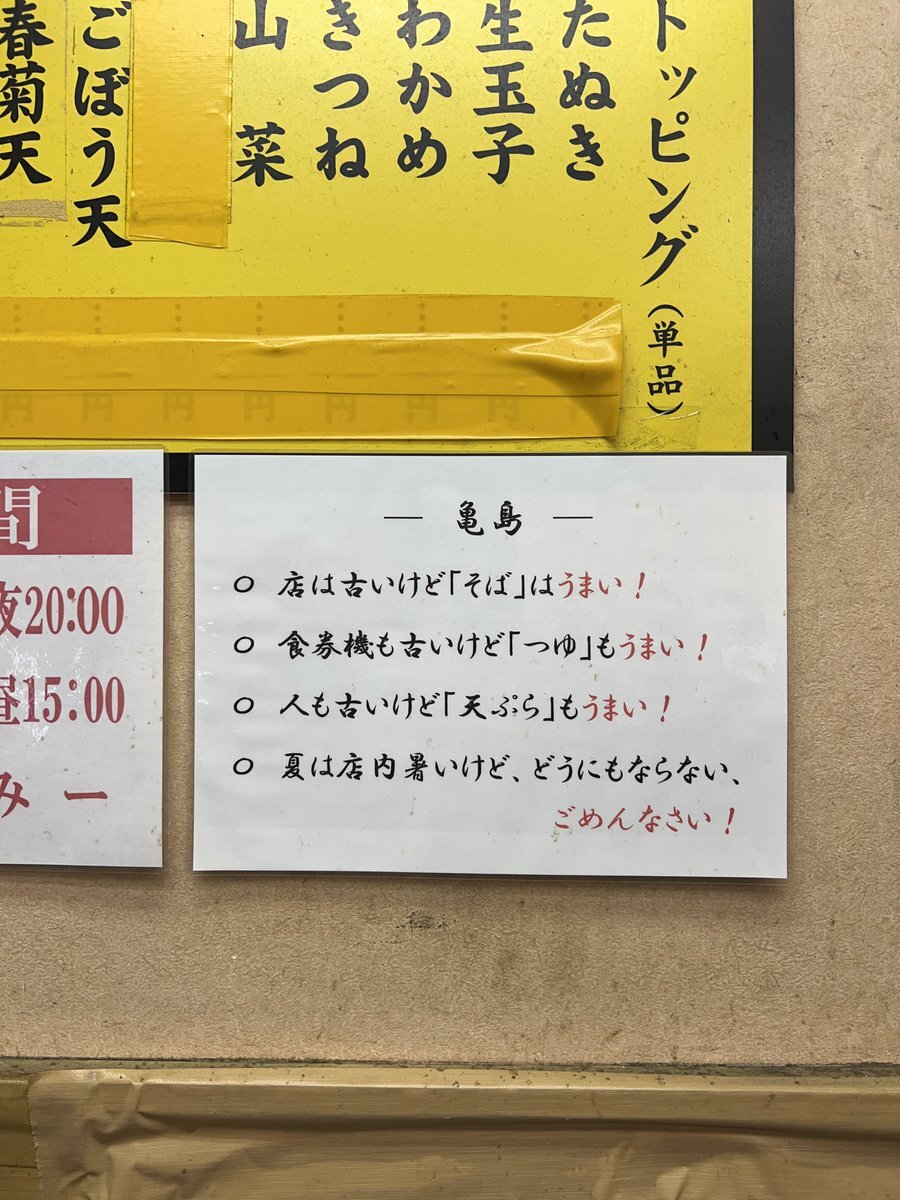 トッピング(単品)
たぬき
生玉子
わかめ
きつね
山菜
ごぼう天
春菊天
円 円 円 円 円 円 円 円
間
夜20:00
昼15:00
み ー
― 亀島 ―
○ 店は古いけど「そば」はうまい!
○ 食券機も古いけど「つゆ」もうまい!
○ 人も古いけど「天ぷら」もうまい!
○ 夏は店内暑いけど、どうにもならない、
ごめんなさい!